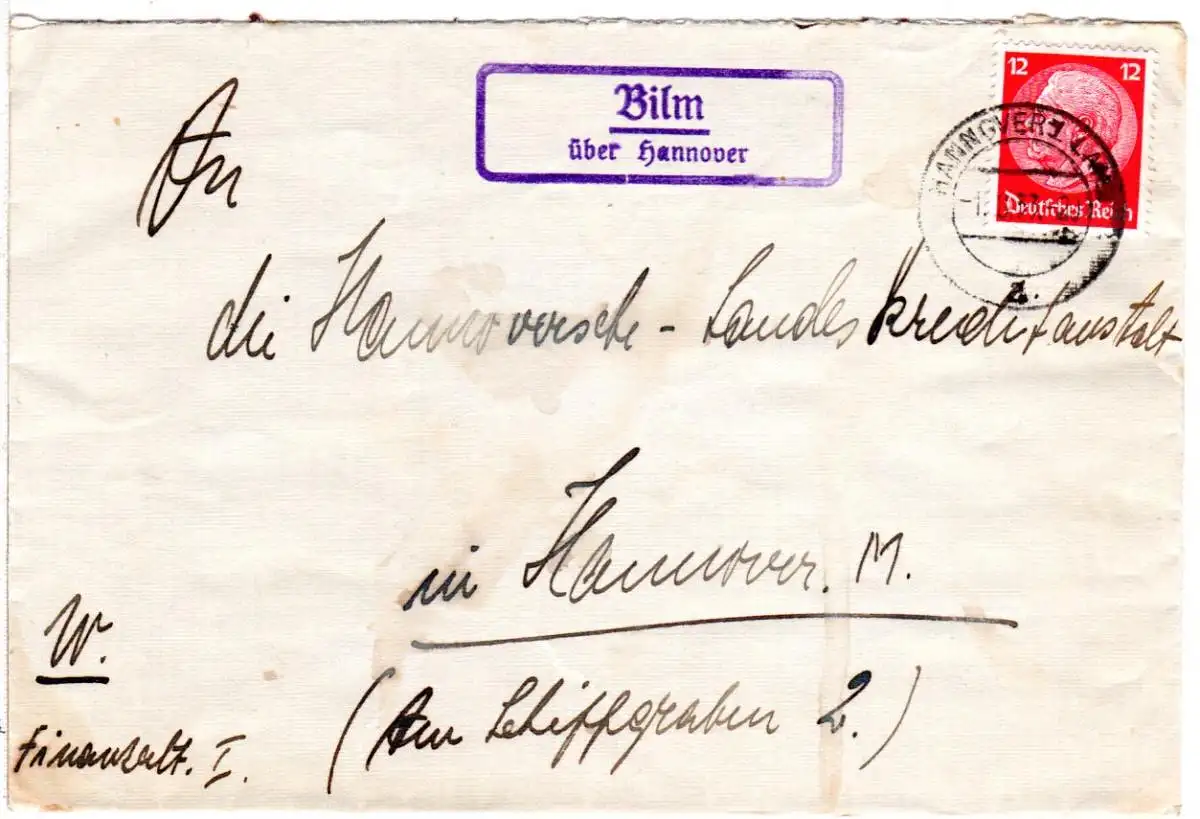 Bilm
über Hannover
12 12
Deutsches Reich
HANNOVER 1
2.
An
die Hannoversche - Landeskreditanstalt
in Hannover. M.
W.
(Am Schiffgraben 2.)
Finanzabt. I.